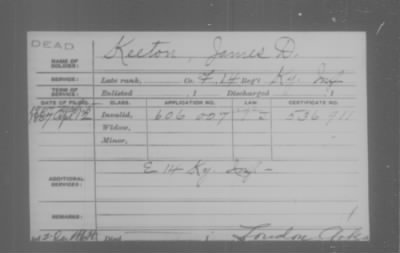 DEAD
NAME OF SOLDIER: Keeton, James D.
SERVICE: Late rank, Co. F, 14 Reg't Ky. Inf
TERM OF SERVICE: Enlisted , 1 Discharged , 1
DATE OF FILING. CLASS. APPLICATION NO. LAW. CERTIFICATE NO.
1887 Apl 12 Invalid, 606 007 536 911
Widow,
Minor,
ADDITIONAL SERVICES: E 14 Ky. Inf -
REMARKS:
Died , 1